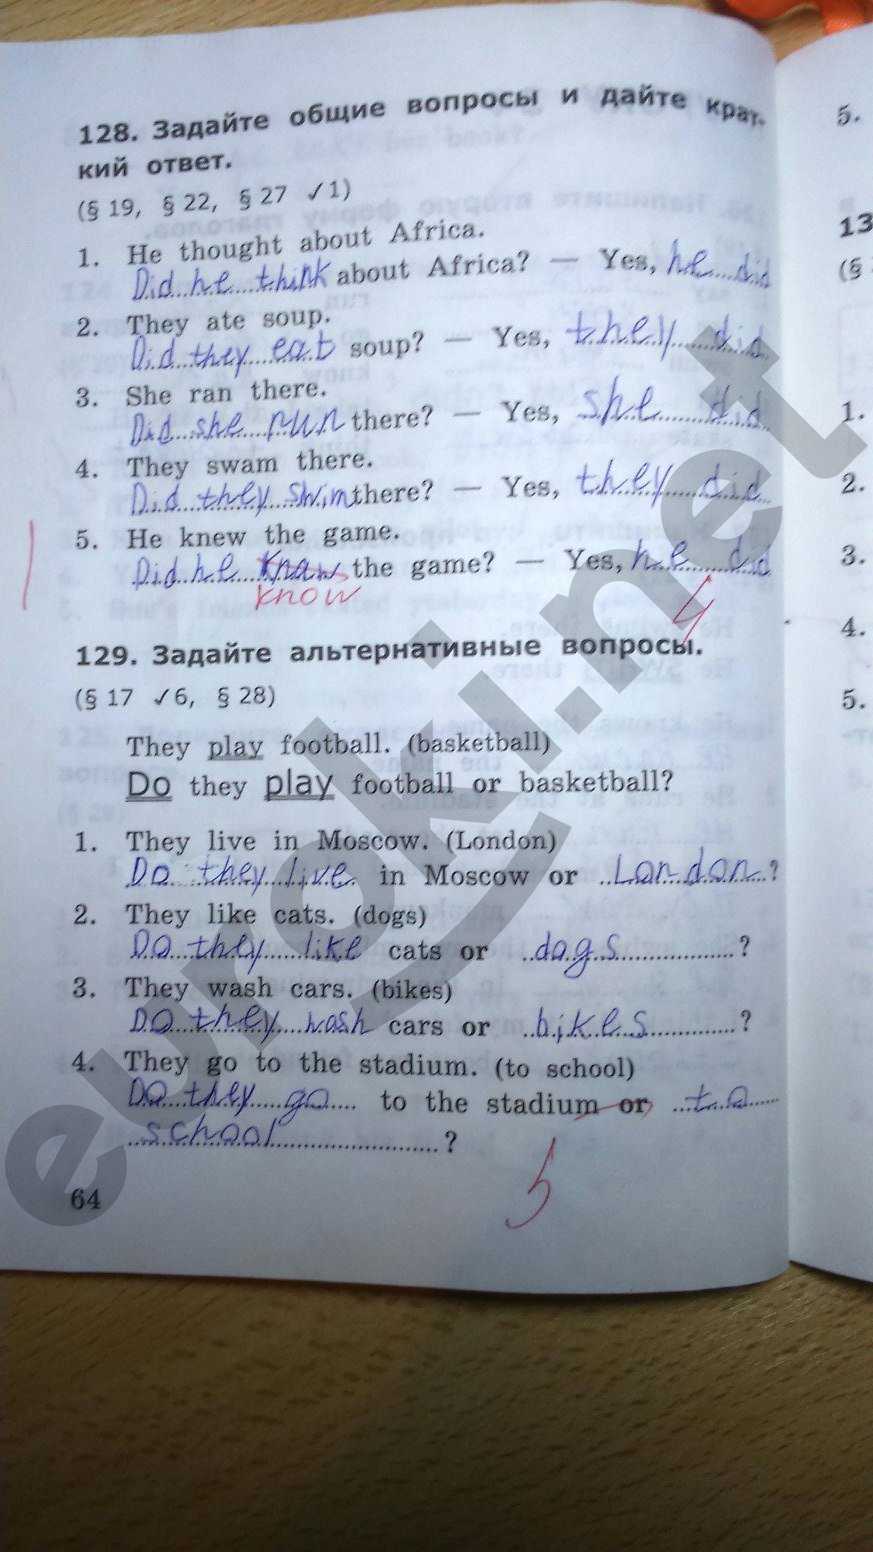 128. Задайте общие вопросы и дайте крат-
кий ответ.
(§ 19, § 22, § 27 ✓1)
1. He thought about Africa.
Did he think about Africa? — Yes, he did
2. They ate soup.
Did they eat soup? — Yes, they did
3. She ran there.
Did she run there? — Yes, she did
4. They swam there.
Did they swim there? — Yes, they did
5. He knew the game.
Did he know the game? — Yes, he did
know
4
129. Задайте альтернативные вопросы.
(§ 17 ✓6, § 28)
They play football. (basketball)
Do they play football or basketball?
1. They live in Moscow. (London)
Do they live in Moscow or London?
2. They like cats. (dogs)
Do they like cats or dogs?
3. They wash cars. (bikes)
Do they wash cars or bikes?
4. They go to the stadium. (to school)
Do they go to the stadium or to
school?
5
64
5.
13
(§
1.
2.
3.
4.
5.
euroki.net